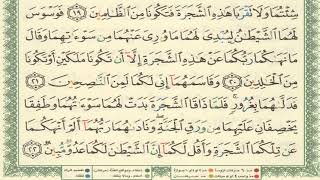 شِئْتُمَا وَلَا تَقْرَبَا هَٰذِهِ الشَّجَرَةَ فَتَكُونَا مِنَ الظَّالِمِينَ ١٩ فَوَسْوَسَ
لَهُمَا الشَّيْطَانُ لِيُبْدِيَ لَهُمَا مَا وُورِيَ عَنْهُمَا مِنْ سَوْءَاتِهِمَا وَقَالَ
مَا نَهَاكُمَا رَبُّكُمَا عَنْ هَٰذِهِ الشَّجَرَةِ إِلَّا أَنْ تَكُونَا مَلَكَيْنِ أَوْ تَكُونَا
مِنَ الْخَالِدِينَ ٢٠ وَقَاسَمَهُمَا إِنِّي لَكُمَا لَمِنَ النَّاصِحِينَ ٢١
فَدَلَّاهُمَا بِغُرُورٍ فَلَمَّا ذَاقَا الشَّجَرَةَ بَدَتْ لَهُمَا سَوْءَاتُهُمَا وَطَفِقَا
يَخْصِفَانِ عَلَيْهِمَا مِنْ وَرَقِ الْجَنَّةِ وَنَادَاهُمَا رَبُّهُمَا أَلَمْ أَنْهَكُمَا
عَنْ تِلْكُمَا الشَّجَرَةِ وَأَقُلْ لَكُمَا إِنَّ الشَّيْطَانَ لَكُمَا عَدُوٌّ مُبِينٌ ٢٢